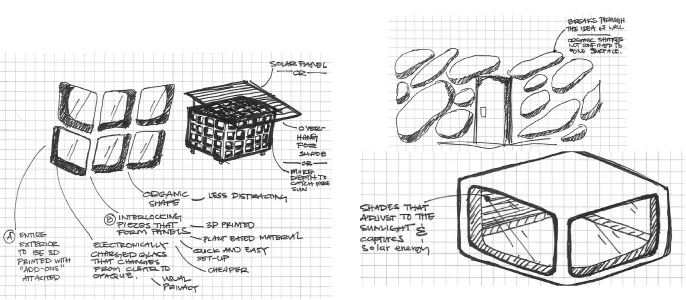 SOLAR PANEL
OR
OVER-
HANG
FOR
SHADE
OR
MORE
DEPTH TO
CATCH MORE
SUN
ORGANIC
SHAPE
LESS DISTRACTING
A ENTIRE
EXTERIOR
TO BE 3D
PRINTED WITH
"ADD-ONS"
ATTACHED
B INTERLOCKING
PIECES THAT
FORM PANELS
3D PRINTED
PLANT BASED MATERIAL
QUICK AND EASY
SET-UP
CHEAPER
ELECTRONICALLY
CHARGED GLASS
THAT CHANGES
FROM CLEAR TO
OPAQUE.
VISUAL
PRIVACY
BREAKS THROUGH
THE IDEA OF WALL
ORGANIC SHAPES
NOT CONFINED TO
ONE SURFACE.
SHADES THAT
ADJUST TO THE
SUNLIGHT &
captures
Solar energy